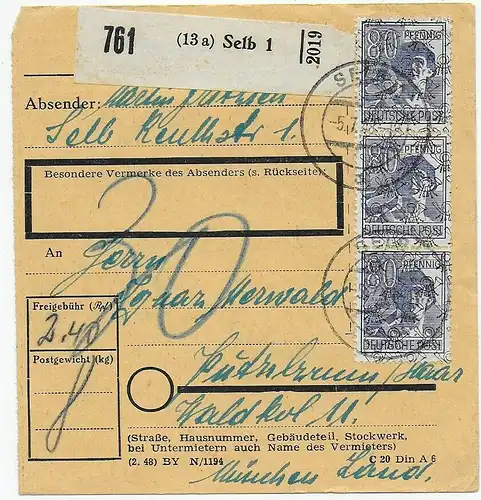 761 (13 a) Selb 1 2019
80 PFENNIG
DEUTSCHE POST
80 PFENNIG
DEUTSCHE POST
80 PFENNIG
DEUTSCHE POST
SELB
Absender: Martin
Selb 1
Besondere Vermerke des Absenders (s. Rückseite):
30
An Herrn
Ignaz Morwald
Freigebühr (Rpf)
2.40
Postgewicht (kg)
8
Putzbrunn, Haar
Waldkol 11.
(Straße, Hausnummer, Gebäudeteil, Stockwerk,
bei Untermietern auch Name des Vermieters)
(2. 48) BY N/1194 C 20 Din A 6
München Land.